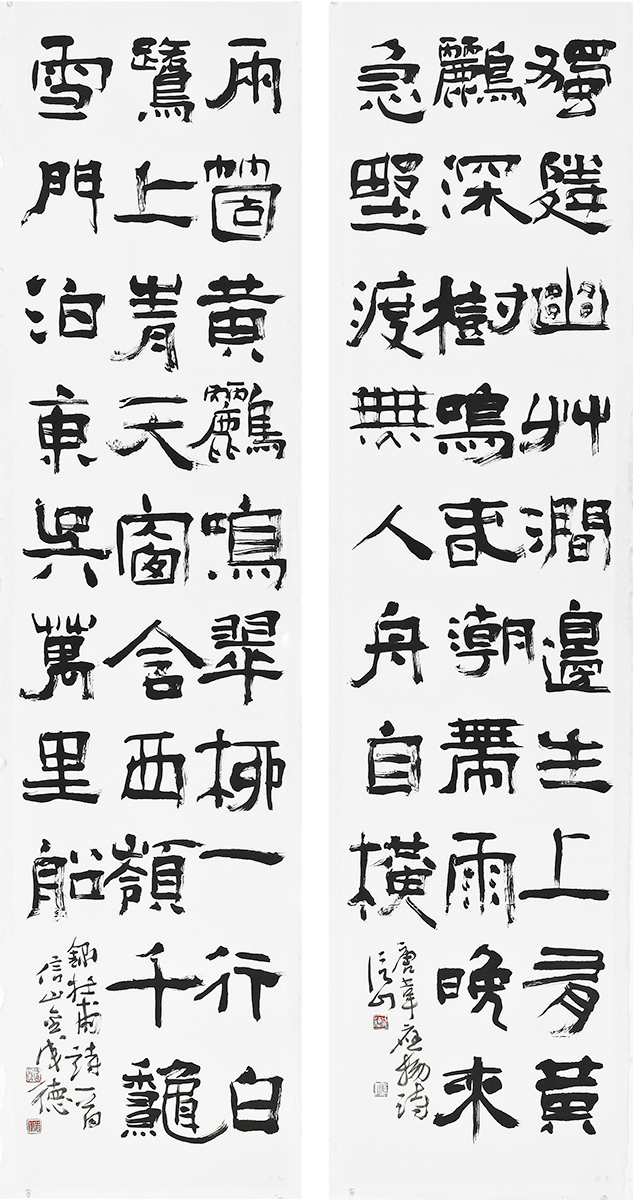 獨憐幽艸澗邊生上有黃
鸝深樹鳴春潮帶雨晚來
急野渡無人舟自橫
唐韋應物詩
信山
兩箇黃鸝鳴翠柳一行白
鷺上青天窗含西嶺千龝
雪門泊東吳萬里船
錄杜甫詩一首
信山金成德